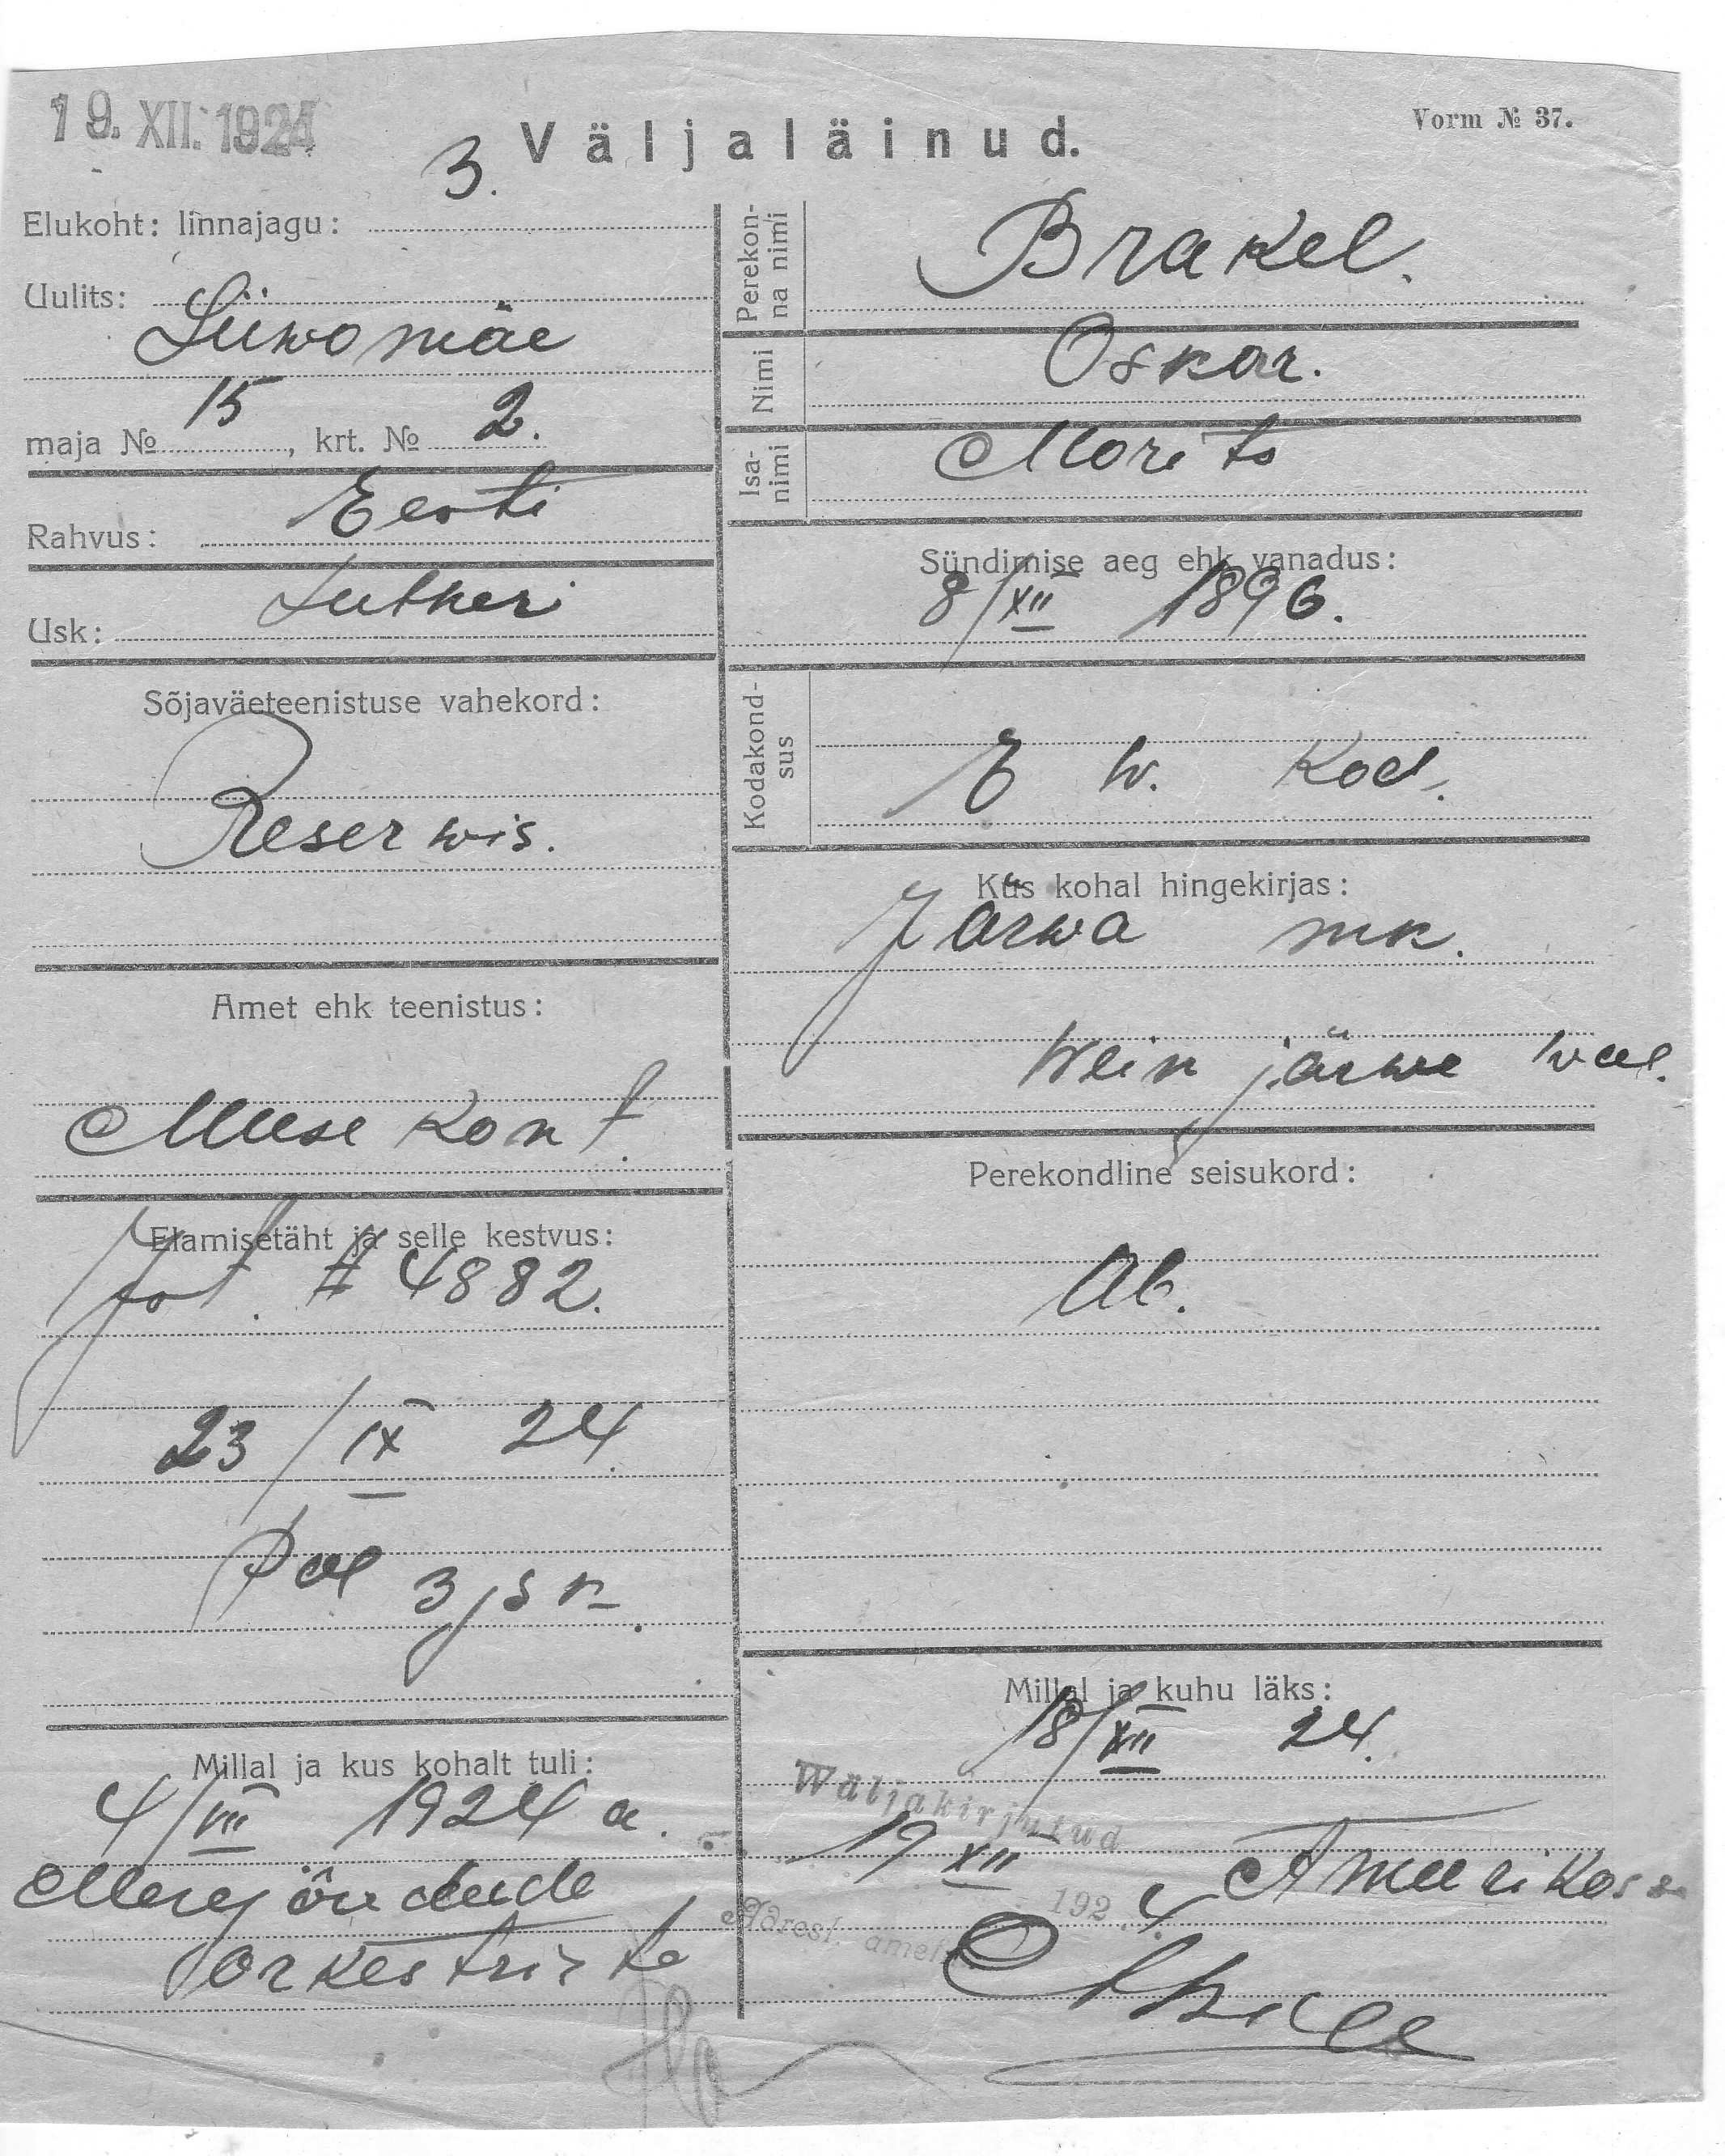 19. XII. 1924
Väljaläinud.
Vorm № 37.
Elukoht: linnajagu: 3.
Uulits:
Liiwomäe
maja № 15, krt. № 2.
Rahvus: Eesti
Usk: Lutheri
Sõjaväeteenistuse vahekord:
Reserwis.
Amet ehk teenistus:
Musekont.
Elamisetäht ja selle kestvus:
№ 4882.
23/IX 24.
3 jsk.
Millal ja kus kohalt tuli:
4/VIII 1924 a.
Merejõudude
orkestrist
Perekonna nimi
Brakel.
Nimi
Oskar.
Isanimi
Morits
Sündimise aeg ehk vanadus:
8/XII 1896.
Kodakondsus
E w. Kod.
Kus kohal hingekirjas:
Järwa mk.
Wein järwe wal.
Perekondline seisukord:
Ab.
Millal ja kuhu läks:
18/XII 24.
Wäljakirjutud
19 XII 1924
Ameerikasse
Adresl. amet